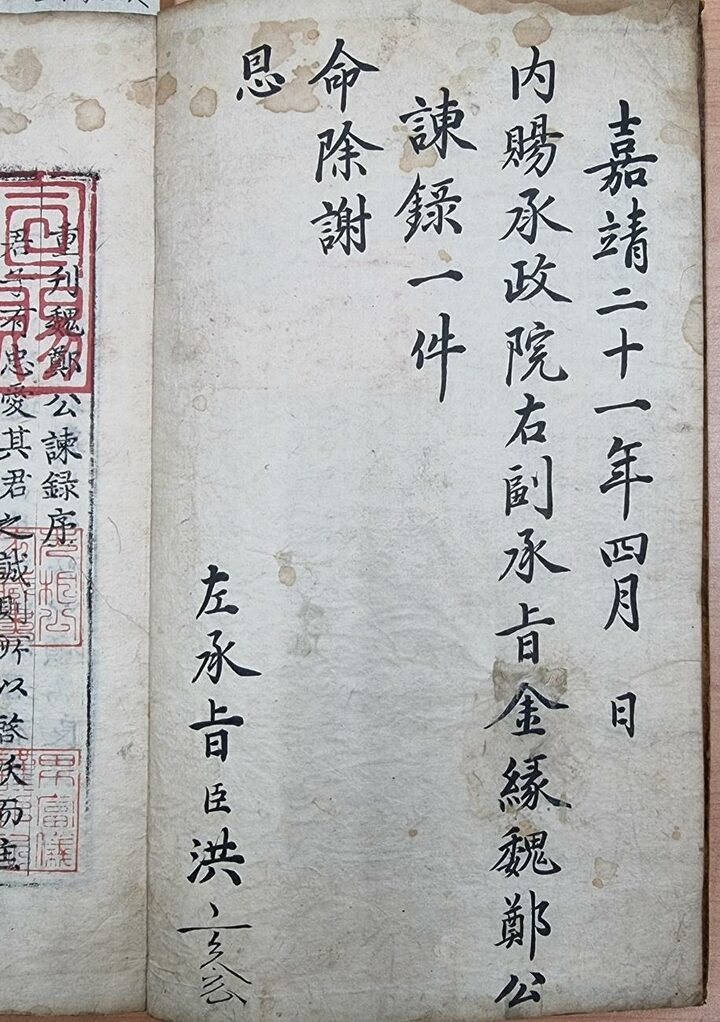 嘉靖二十一年四月 日
内賜承政院右副承旨金緣魏鄭公
諫錄一件
命除謝
恩
左承旨臣洪
重刋魏鄭公諫録序
君子有忠愛其君之誠則所以啓沃而
宣賜